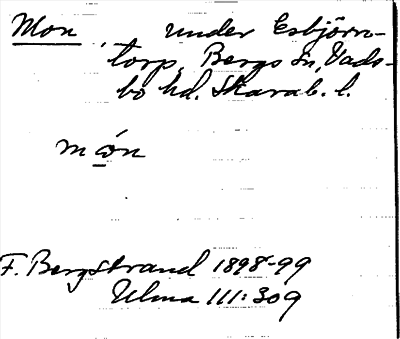 Mon, under Esbjörn-
torp, Bergs sn, Vads-
bo hd. Skarab. l.
mώn
F. Bergstrand 1898-99
Ulma 111:309